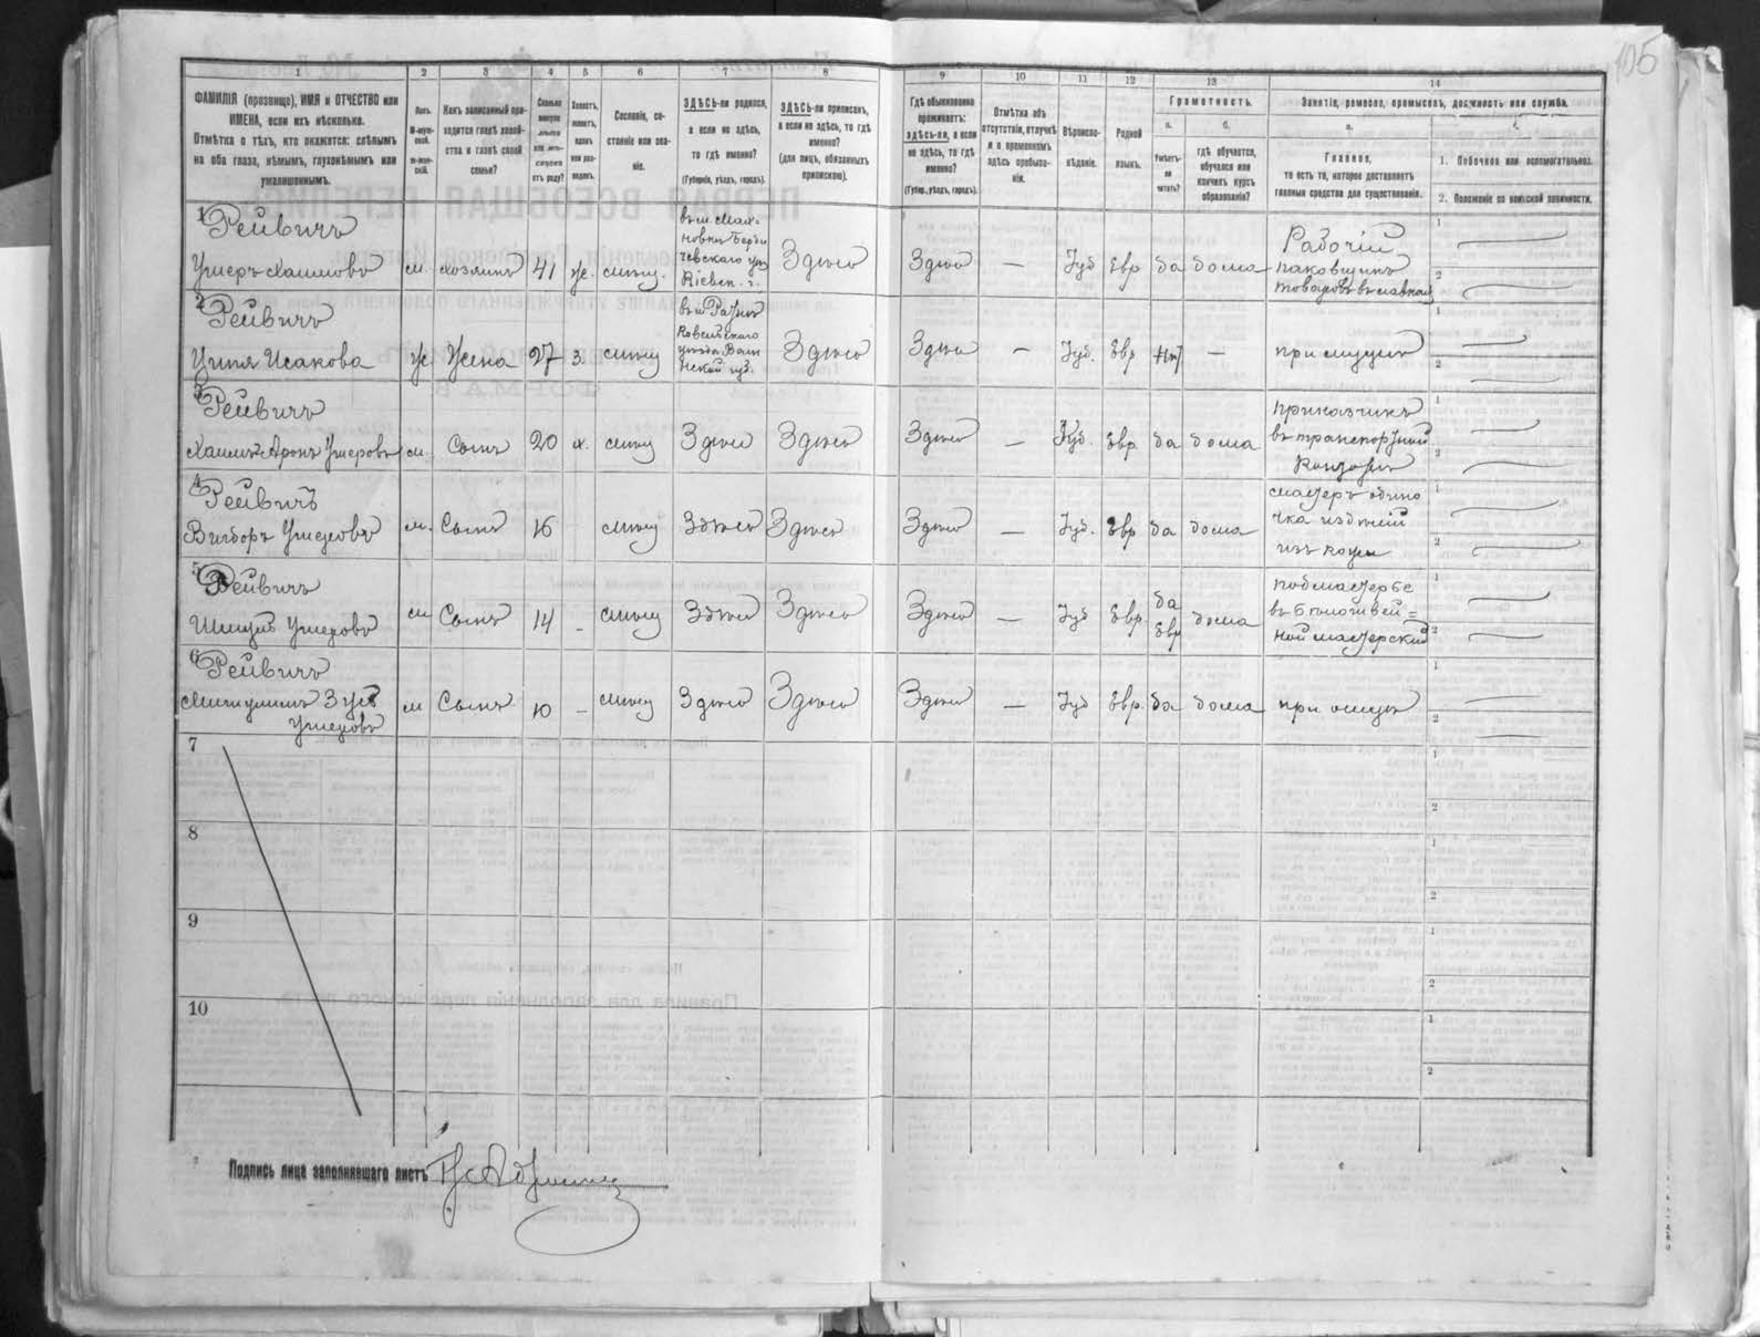 105
1 2 3 4 5 6 7 8 9 10 11 12 13 14
ФАМИЛІЯ (прозвище), ИМЯ и ОТЧЕСТВО или
ИМЕНА, если ихъ нѣсколько.
Отмѣтка о тѣхъ, кто окажется: слѣпымъ
на оба глаза, нѣмымъ, глухонѣмымъ или
умалишеннымъ.
Полъ.
М-муж-
ской.
Ж-жен-
скій.
Какъ записанный при-
ходится главѣ хозяй-
ства и главѣ своей
семьи?
Сколько
минуло
лѣтъ
или мѣ-
сяцевъ
отъ роду?
Холостъ,
женатъ,
вдовъ
или раз-
веденъ.
Сословіе, со-
стояніе или зва-
ніе.
ЗДѢСЬ-ли родился,
а если не здѣсь,
то гдѣ именно?
(Губернія, уѣздъ, городъ).
ЗДѢСЬ-ли приписанъ,
а если не здѣсь, то гдѣ
именно?
(для лицъ, обязанныхъ
припискою).
Гдѣ обыкновенно
проживаетъ:
здѣсь-ли, а если
не здѣсь, то гдѣ
именно?
(Губер., уѣздъ, городъ).
Отмѣтка объ
отсутствіи, отлучкѣ
и о временномъ
здѣсь пребыва-
ніи.
Вѣроиспо-
вѣданіе.
Родной
языкъ.
Грамотность.
а.
Умѣетъ-
ли
читать?
б.
гдѣ обучается,
обучался или
кончилъ курсъ
образованія?
Занятіе, ремесло, промыселъ, должность или служба.
а.
Главное,
то есть то, которое доставляетъ
главныя средства для существованія.
б.
1. Побочное или вспомогательное.
2. Положеніе по воинской повинности.
1 Рейвичъ
Ушеръ Хаимовъ м. хозяинъ 41 ж. мѣщ.
въ м. Мах-
новкѣ Берди
чевскаго уѣз
Кіевск. г.
Здѣсь Здѣсь — Іуд Евр да дома
Рабочій
паковщикъ
товаровъ въ лавкахъ
2 Рейвичъ
Ципя Исакова ж Жена 27 з. мѣщ
Ковельскаго
уѣзда Волы
нской губ.
Здѣсь Здѣсь — Іуд. Евр нѣт — при мужѣ
3 Рейвичъ
Хаимъ-Аронъ Ушеровъ м. Сынъ 20 х. мѣщ Здѣсь Здѣсь Здѣсь — Іуд. Евр да дома
приказчикъ
въ транспортной
Конторѣ
4 Рейвичъ
Вигдоръ Ушеровъ м. Сынъ 16 мѣщ Здѣсь Здѣсь Здѣсь — Іуд. Евр да дома
мастеръ одино
чка издѣлій
изъ кожи
5 Рейвичъ
Шмуль Ушеровъ м Сынъ 14 - мѣщ Здѣсь Здѣсь Здѣсь — Іуд Евр. да
Евр дома
подмастерье
въ бѣлошвей=
ной мастерской
6 Рейвичъ
Зусь
Ушеровъ м Сынъ 10 - мѣщ Здѣсь Здѣсь Здѣсь — Іуд Евр. да дома при отцѣ
7
8
9
10
Подпись лица заполнявшаго листъ